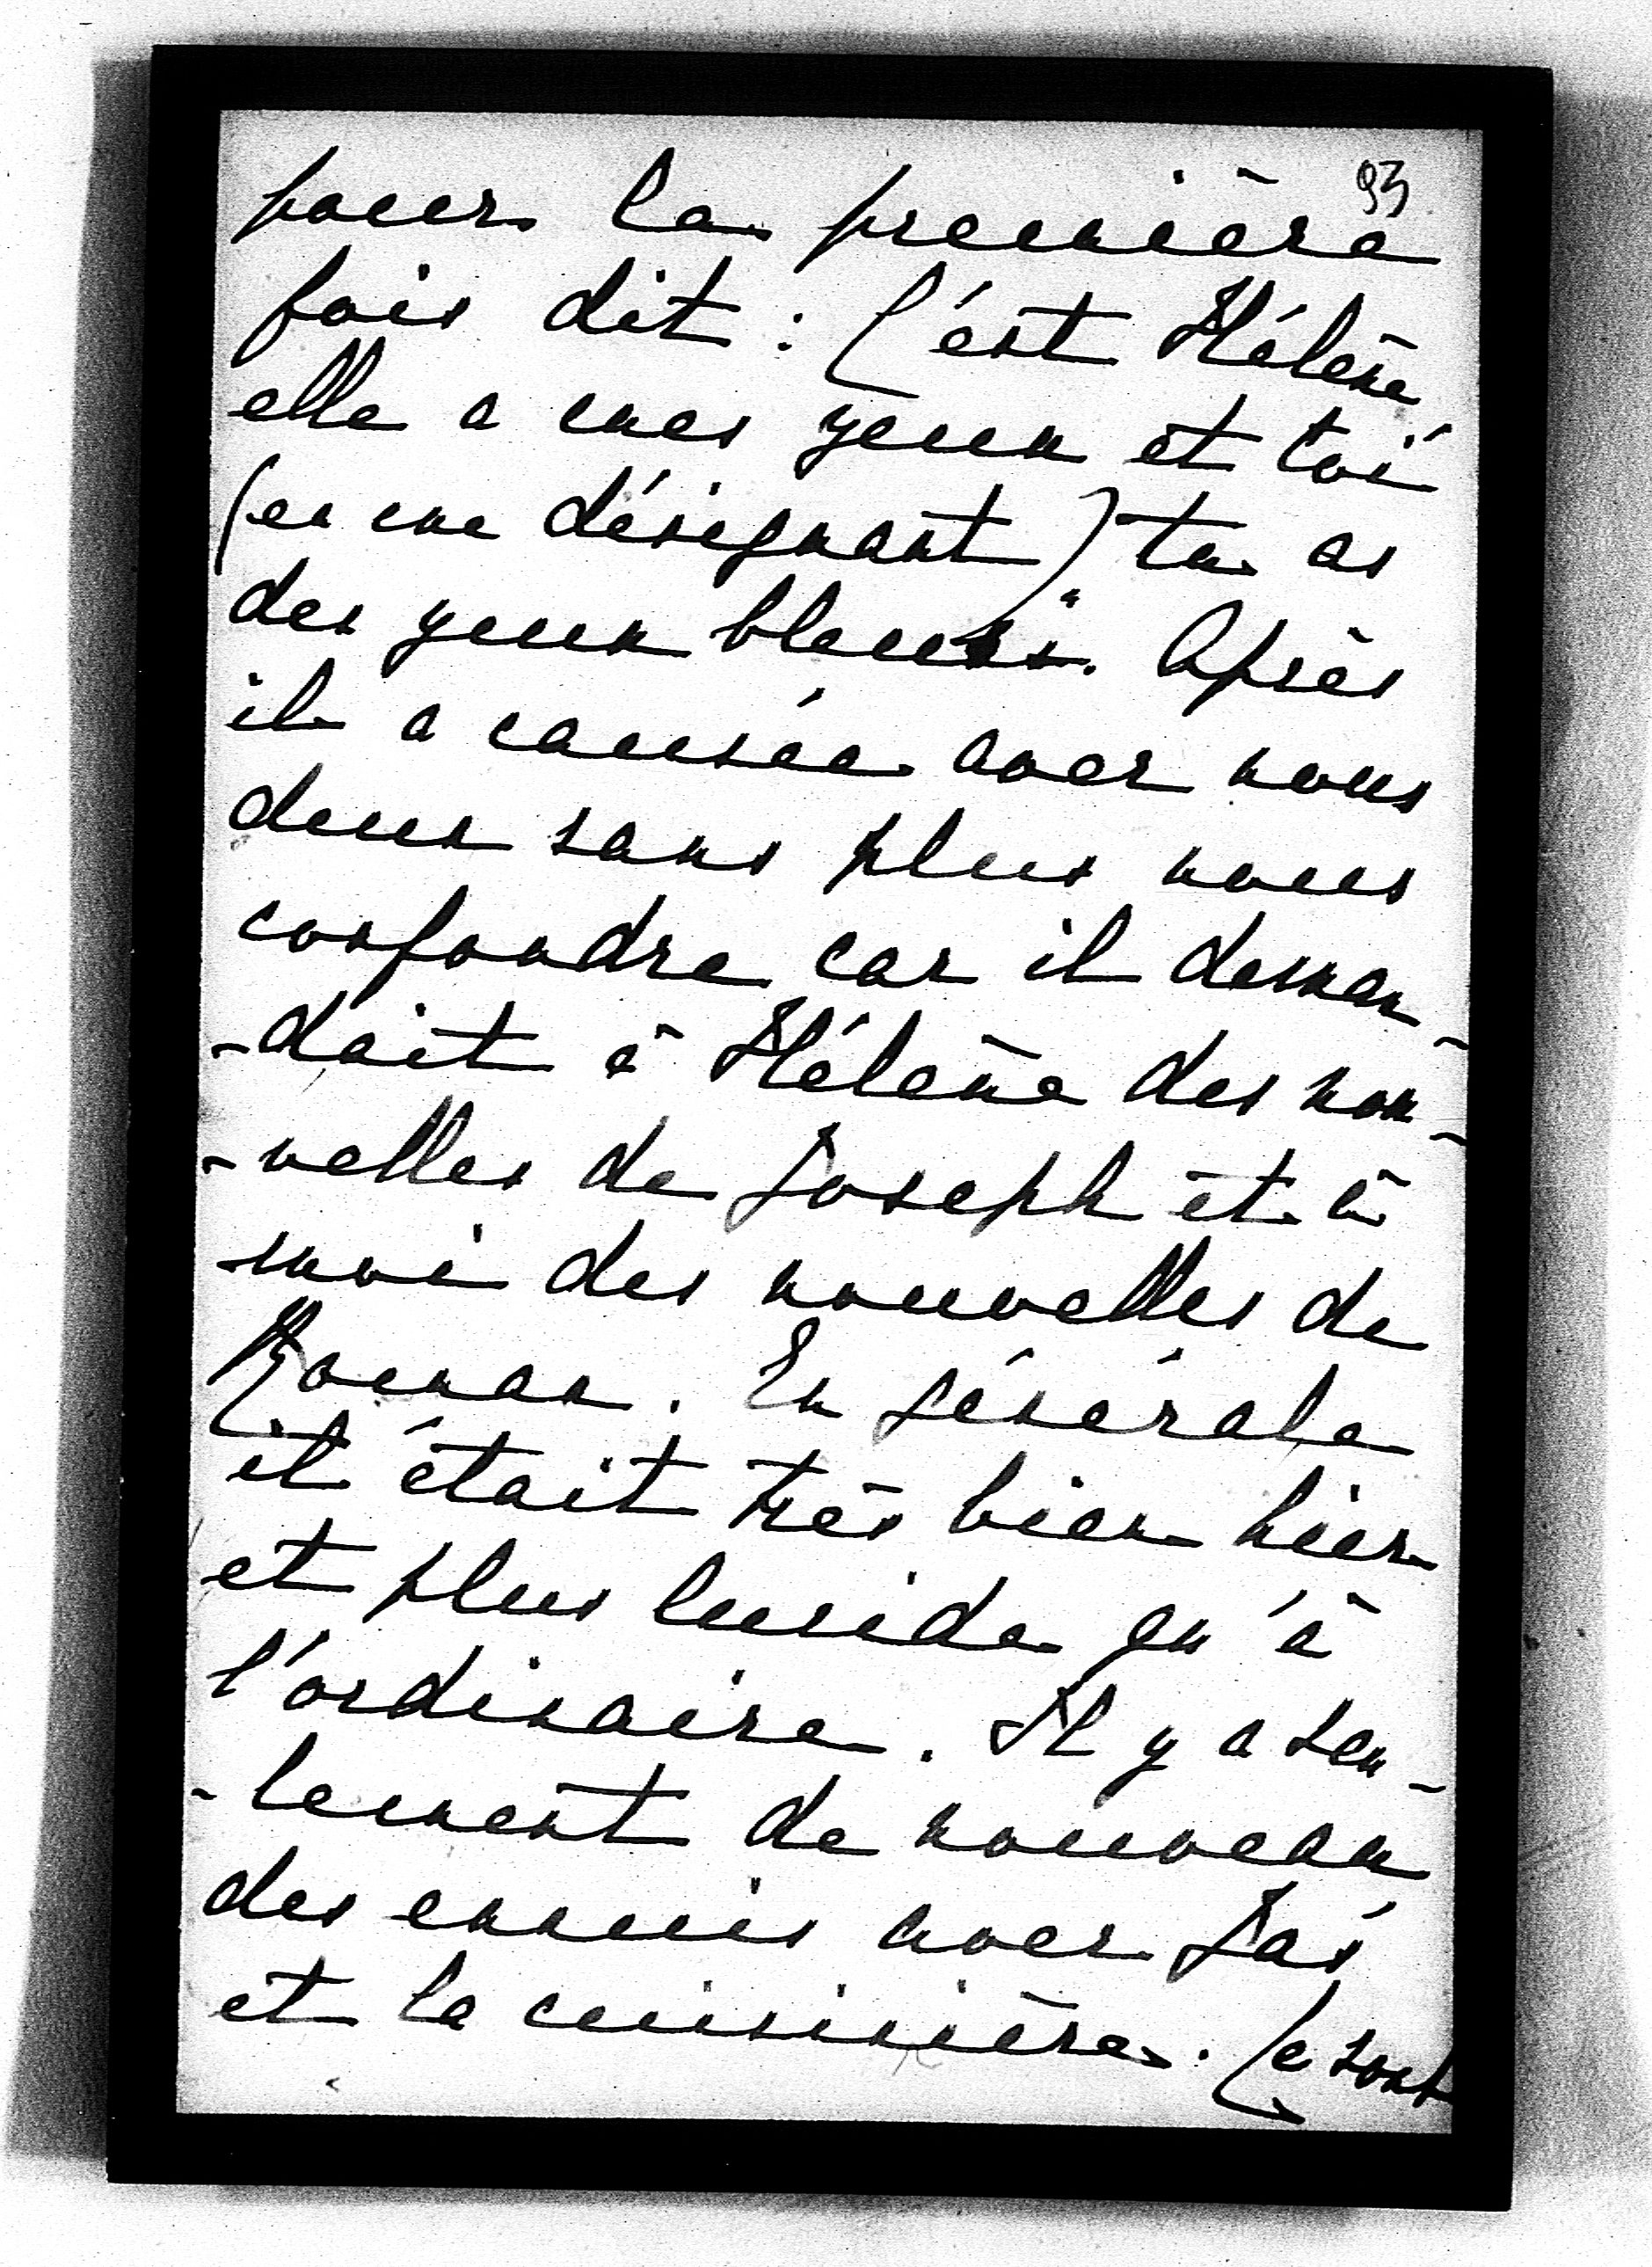 93
pour la première
fois dit : C'est Hélène
elle a mes yeux et toi
(en me désignant) tu as
des yeux bleus". Après
il a causée avec nous
deux sans plus nous
confondre car il deman-
-dait à Hélène des nou-
-velles de Joseph et à
moi des nouvelles de
Roman. En générale
il était très bien hier
et plus lucide qu'à
l'ordinaire. Il y a seu-
-lement de nouveau
des ennuis avec
et la cuisinière. Ce sont